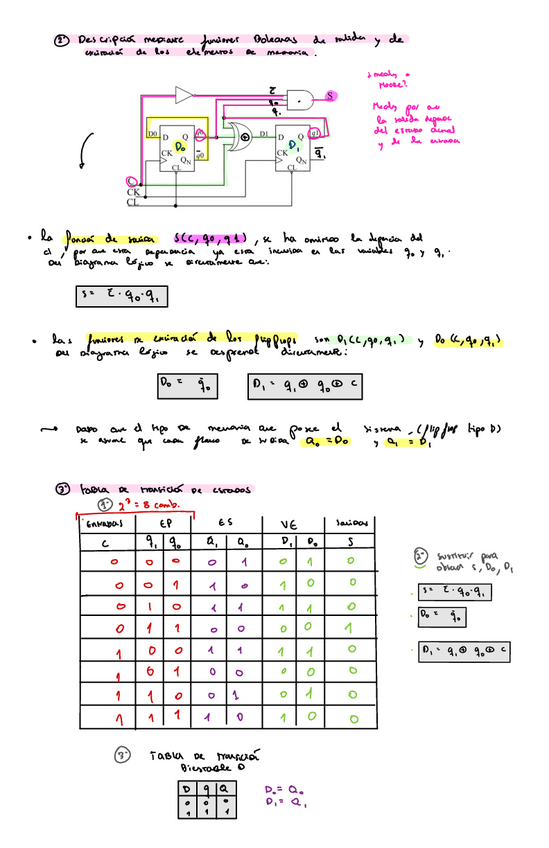 2º Descripción mediante funciones Boleanas de salida y de
excitación de los elementos de memoria.
¿mealy o
Moore?
Mealy por que
la salida depende
del estado actual
y de la entrada
c̄
q0
q1
S
D0 D Q q0 D1 D Q q1
D0 D1
CK CK
QN q̄0 QN q̄1
CL CL
C
CK
CL
• la función de salida S(c, q0, q1), se ha omitido la depencia del
cl, por que esta dependencia ya esta incluida en las variables q0 y q1.
Del diagrama lógico se directamente que:
S = c̄ · q0 · q1
• las funciones de excitación de los flipflops son D1(c, q0, q1) y D0(c, q0, q1)
Del diagrama lógico se desprende directamente:
D0 = q̄0
D1 = q1 ⊕ q0 ⊕ c
→ Dado que el tipo de memoria que posee el sistema (flip flop tipo D)
se que cada flanco de subida Q0 = D0 y Q1 = D1
3º Tabla de transición de estados
1º 2³ = 8 comb.
Entradas EP ES VE Salidas
C q1 q0 Q1 Q0 D1 D0 S
0 0 0 0 1 0 1 0
0 0 1 1 0 1 0 0
0 1 0 1 1 1 1 0
0 1 1 0 0 0 0 1
1 0 0 1 1 1 1 0
1 0 1 0 0 0 0 0
1 1 0 0 1 0 1 0
1 1 1 1 0 1 0 0
2º sustituir para
obtener S, D0, D1
S = c̄ · q0 · q1
D0 = q̄0
D1 = q1 ⊕ q0 ⊕ c
3º Tabla de transición
Biestable D
D q Q
0 0 0
1 1 1
D0 = Q0
D1 = Q1